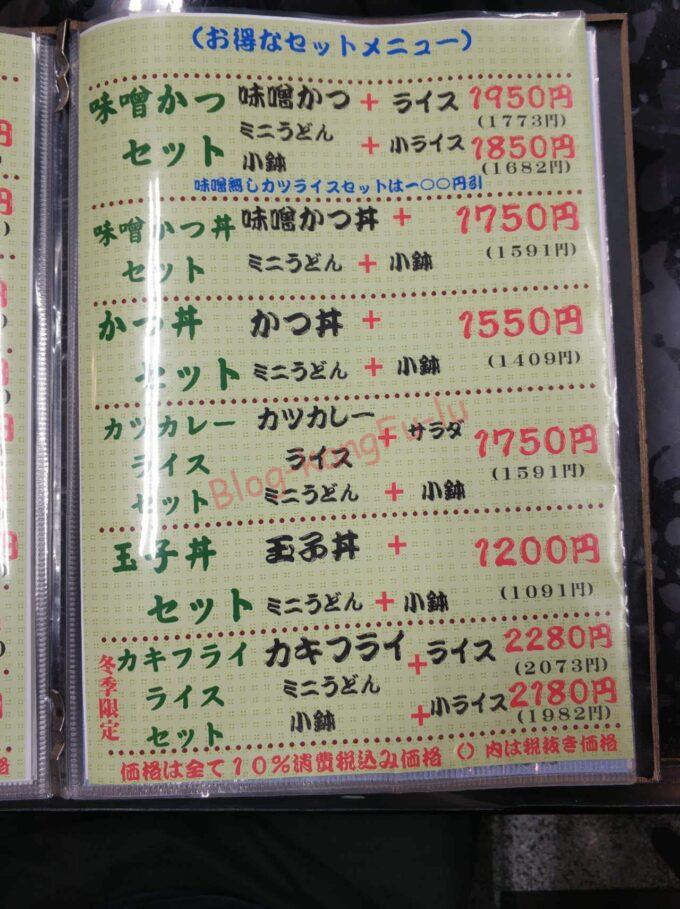 (お得なセットメニュー)
味噌かつ 味噌かつ + ライス 1950円
(1773円)
セット ミニうどん + 小ライス 1850円
小鉢 (1682円)
味噌無しカツライスセットは一〇〇円引
味噌かつ丼 味噌かつ丼 + 1750円
セット ミニうどん + 小鉢 (1591円)
かつ丼 かつ丼 + 1550円
セット ミニうどん + 小鉢 (1409円)
カツカレー カツカレー + サラダ 1750円
ライス ライス (1591円)
セット ミニうどん + 小鉢
玉子丼 玉子丼 + 1200円
セット ミニうどん + 小鉢 (1091円)
冬季限定
カキフライ カキフライ + ライス 2280円
(2073円)
ライス ミニうどん + 小ライス 2180円
セット 小鉢 (1982円)
価格は全て10%消費税込み価格 () 内は税抜き価格
Blog-KongFu-lu